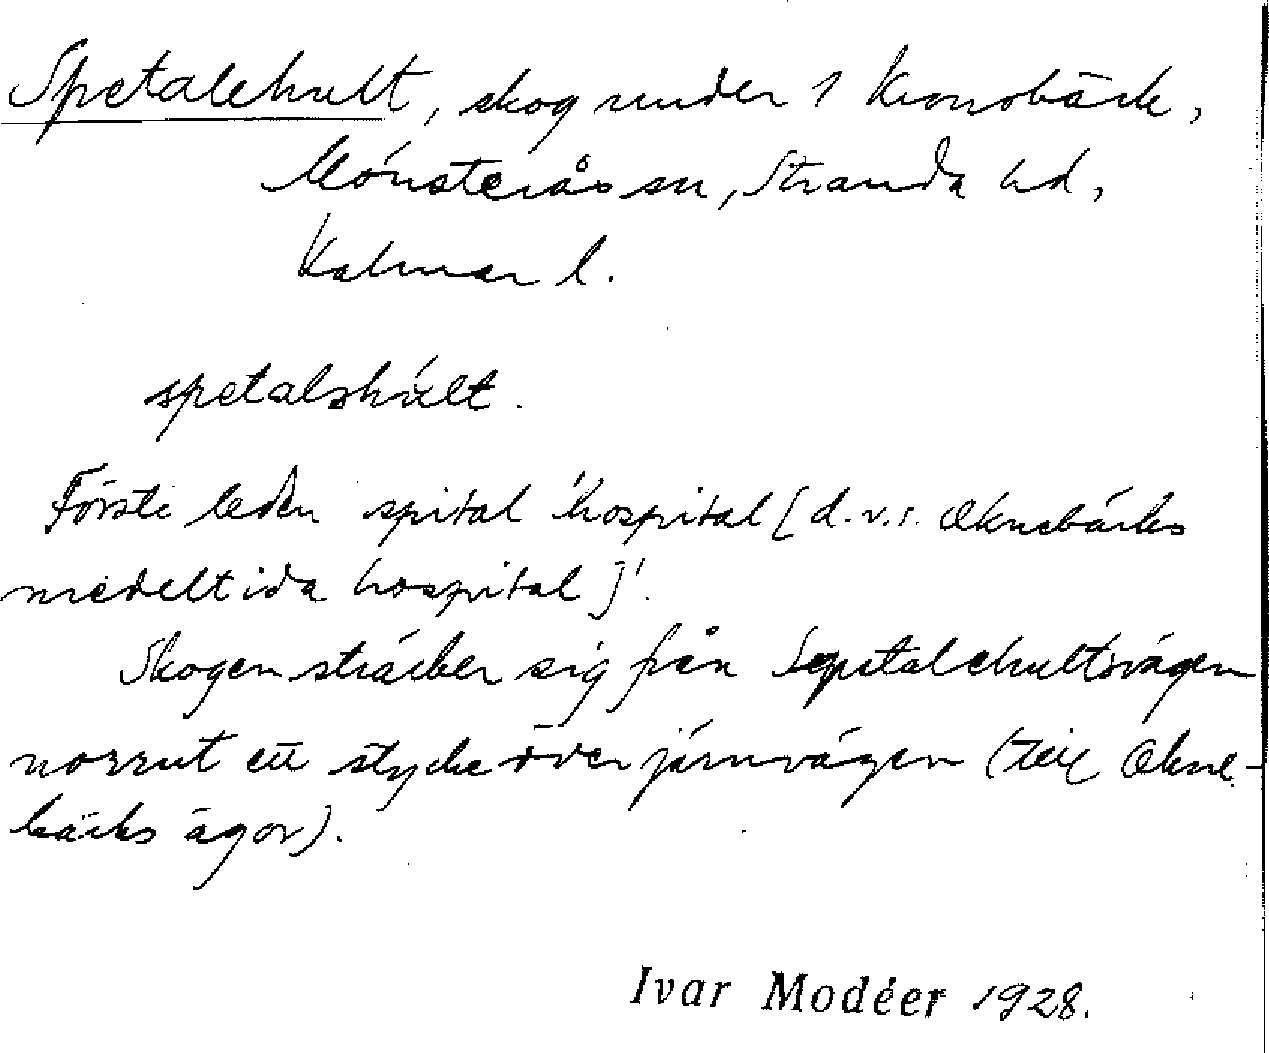 Spetalehult, skog under 1 Kronobäck,
Mönsterås sn, Stranda hd,
Kalmar l.
spetalshúlt.
Förste leden spital 'hospital [d.v.s. Oknebäcks
medeltida hospital]'.
Skogen sträcker sig från Sepetalehultsvägen
norrut ett stycke över järnvägen (till Okne-
bäcks ägor).
Ivar Modéer 1928.